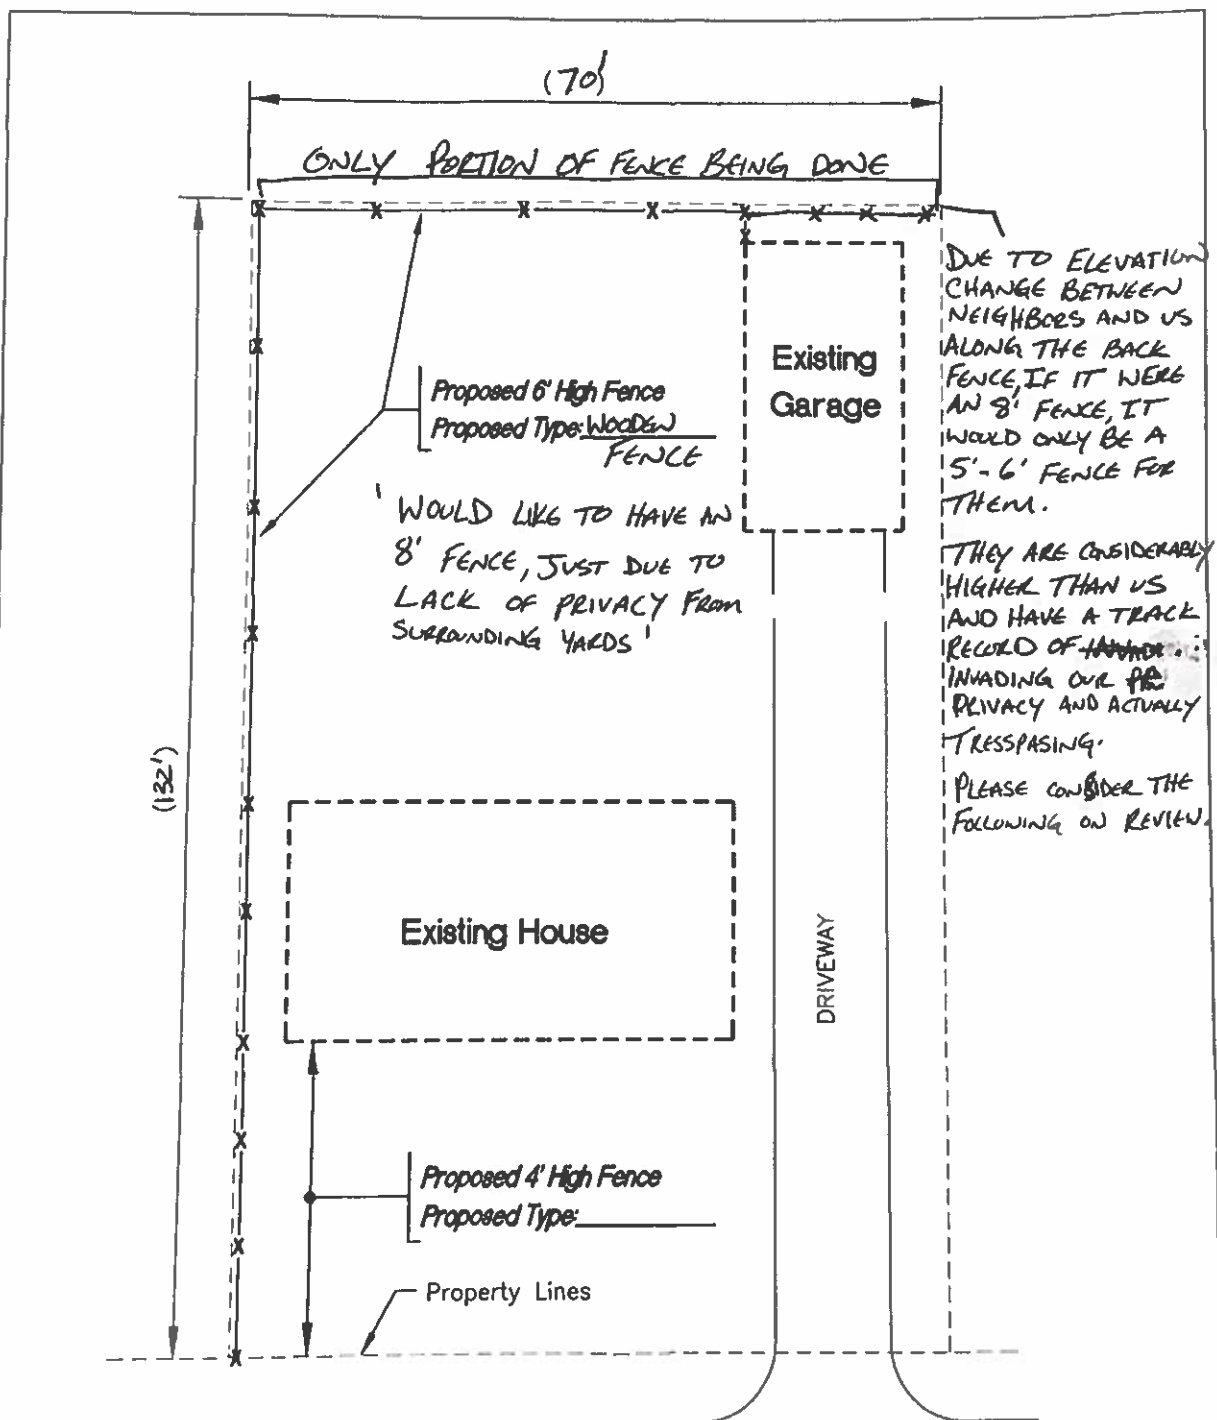 (70')
ONLY PORTION OF FENCE BEING DONE
Proposed 6' High Fence
Proposed Type: WOODEN
FENCE
' WOULD LIKE TO HAVE AN
8' FENCE, JUST DUE TO
LACK OF PRIVACY FROM
SURROUNDING YARDS '
Existing
Garage
DUE TO ELEVATION
CHANGE BETWEEN
NEIGHBORS AND US
ALONG THE BACK
FENCE, IF IT WERE
AN 8' FENCE, IT
WOULD ONLY BE A
5'-6' FENCE FOR
THEM.
THEY ARE CONSIDERABLY
HIGHER THAN US
AND HAVE A TRACK
RECORD OF
INVADING OUR
PRIVACY AND ACTUALLY
TRESSPASING.
PLEASE CONSIDER THE
FOLLOWING ON REVIEW.
(132')
Existing House
DRIVEWAY
Proposed 4' High Fence
Proposed Type:
Property Lines